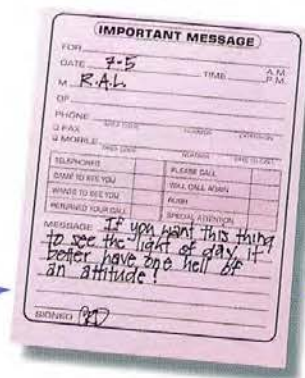 IMPORTANT MESSAGE
FOR
DATE 7-5 TIME A.M. P.M.
M R.A.L.
OF
PHONE
AREA CODE NUMBER EXTENSION
FAX
MOBILE
AREA CODE NUMBER TIME TO CALL
TELEPHONED PLEASE CALL
CAME TO SEE YOU WILL CALL AGAIN
WANTS TO SEE YOU RUSH
RETURNED YOUR CALL SPECIAL ATTENTION
MESSAGE If you want this thing
to see the light of day, it
better have one hell of
an attitude!
SIGNED